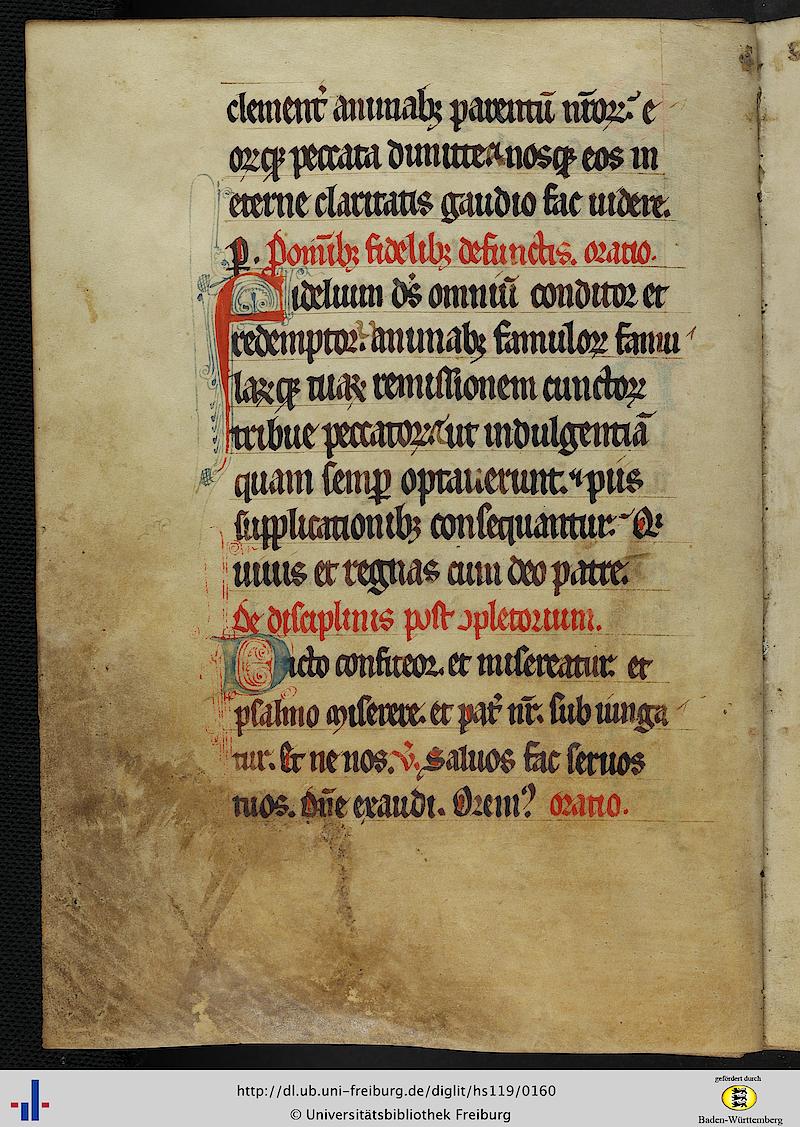 clement᷑ animabꝫ parentū nr̄oꝝ. e
oꝝqꝫ peccata dimitte. nosqꝫ eos in
eterne claritatis gaudio fac uidere.
p. P omībꝫ fidelibꝫ defunctis. oratio.
Fidelium ds̄ omniū conditor et
redemptor. animabꝫ famuloꝝ famu
laꝝqꝫ tuaꝝ remissionem cunctoꝝ
tribue peccatoꝝ. ut indulgentiā
quam semꝑ optauerunt. piis
supplicationibꝫ consequantur. Qi
uiuis et regnas cum deo patre.
De disciplinis post ɔpletorium.
Dicto confiteor. et misereatur. et
psalmo miserere. et pat᷑ nr̄. sub iunga
tur. Et ne nos. V̄. Saluos fac seruos
tuos. Dn̄e exaudi. Orem᷒ oratio.
http://dl.ub.uni-freiburg.de/diglit/hs119/0160
© Universitätsbibliothek Freiburg
gefördert durch
Baden-Württemberg